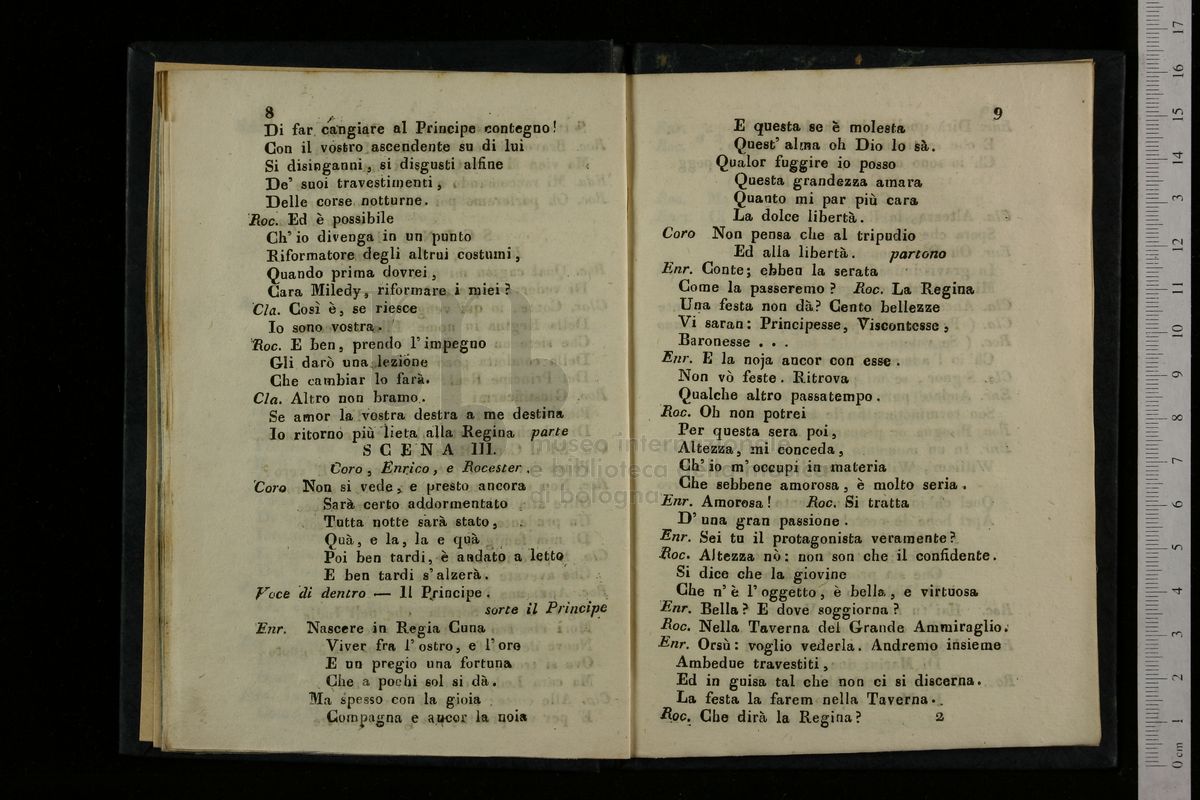 8
Di far cangiare al Principe contegno!
Con il vostro ascendente su di lui
Si disinganni, si disgusti alfine
De' suoi travestimenti,
Delle corse notturne.
Roc. Ed è possibile
Ch' io divenga in un punto
Riformatore degli altrui costumi,
Quando prima dovrei,
Cara Miledy, riformare i miei?
Cla. Così è, se riesce
Io sono vostra.
Roc. E ben, prendo l' impegno
Gli darò una lezione
Che cambiar lo farà.
Cla. Altro non bramo.
Se amor la vostra destra a me destina
Io ritorno più lieta alla Regina parte
SCENA III.
Coro, Enrico, e Rocester.
Coro Non si vede, e presto ancora
Sarà certo addormentato
Tutta notte sarà stato,
Quà, e la, la e quà
Poi ben tardi, è andato a letto
E ben tardi s' alzerà.
Voce di dentro — Il Principe.
sorte il Principe
Enr. Nascere in Regia Cuna
Viver fra l' ostro, e l' oro
E un pregio una fortuna
Che a pochi sol si dà.
Ma spesso con la gioia
Compagna e ancor la noia
9
E questa se è molesta
Quest' alma oh Dio lo sà.
Qualor fuggire io posso
Questa grandezza amara
Quanto mi par più cara
La dolce libertà.
Coro Non pensa che al tripudio
Ed alla libertà. partono
Enr. Conte; ebben la serata
Come la passeremo? Roc. La Regina
Una festa non dà? Cento bellezze
Vi saran: Principesse, Viscontesse,
Baronesse . . .
Enr. E la noja ancor con esse.
Non vò feste. Ritrova
Qualche altro passatempo.
Roc. Oh non potrei
Per questa sera poi,
Altezza, mi conceda,
Ch' io m' occupi in materia
Che sebbene amorosa, è molto seria.
Enr. Amorosa! Roc. Si tratta
D' una gran passione.
Enr. Sei tu il protagonista veramente?
Roc. Altezza nò: non son che il confidente.
Si dice che la giovine
Che n' è l' oggetto, è bella, e virtuosa
Enr. Bella? E dove soggiorna?
Roc. Nella Taverna del Grande Ammiraglio.
Enr. Orsù: voglio vederla. Andremo insieme
Ambedue travestiti,
Ed in guisa tal che non ci si discerna.
La festa la farem nella Taverna.
Roc. Che dirà la Regina? 2
museo internazionale
e biblioteca della musica
di bologna
0 cm 1 2 3 4 5 6 7 8 9 10 11 12 13 14 15 16 17